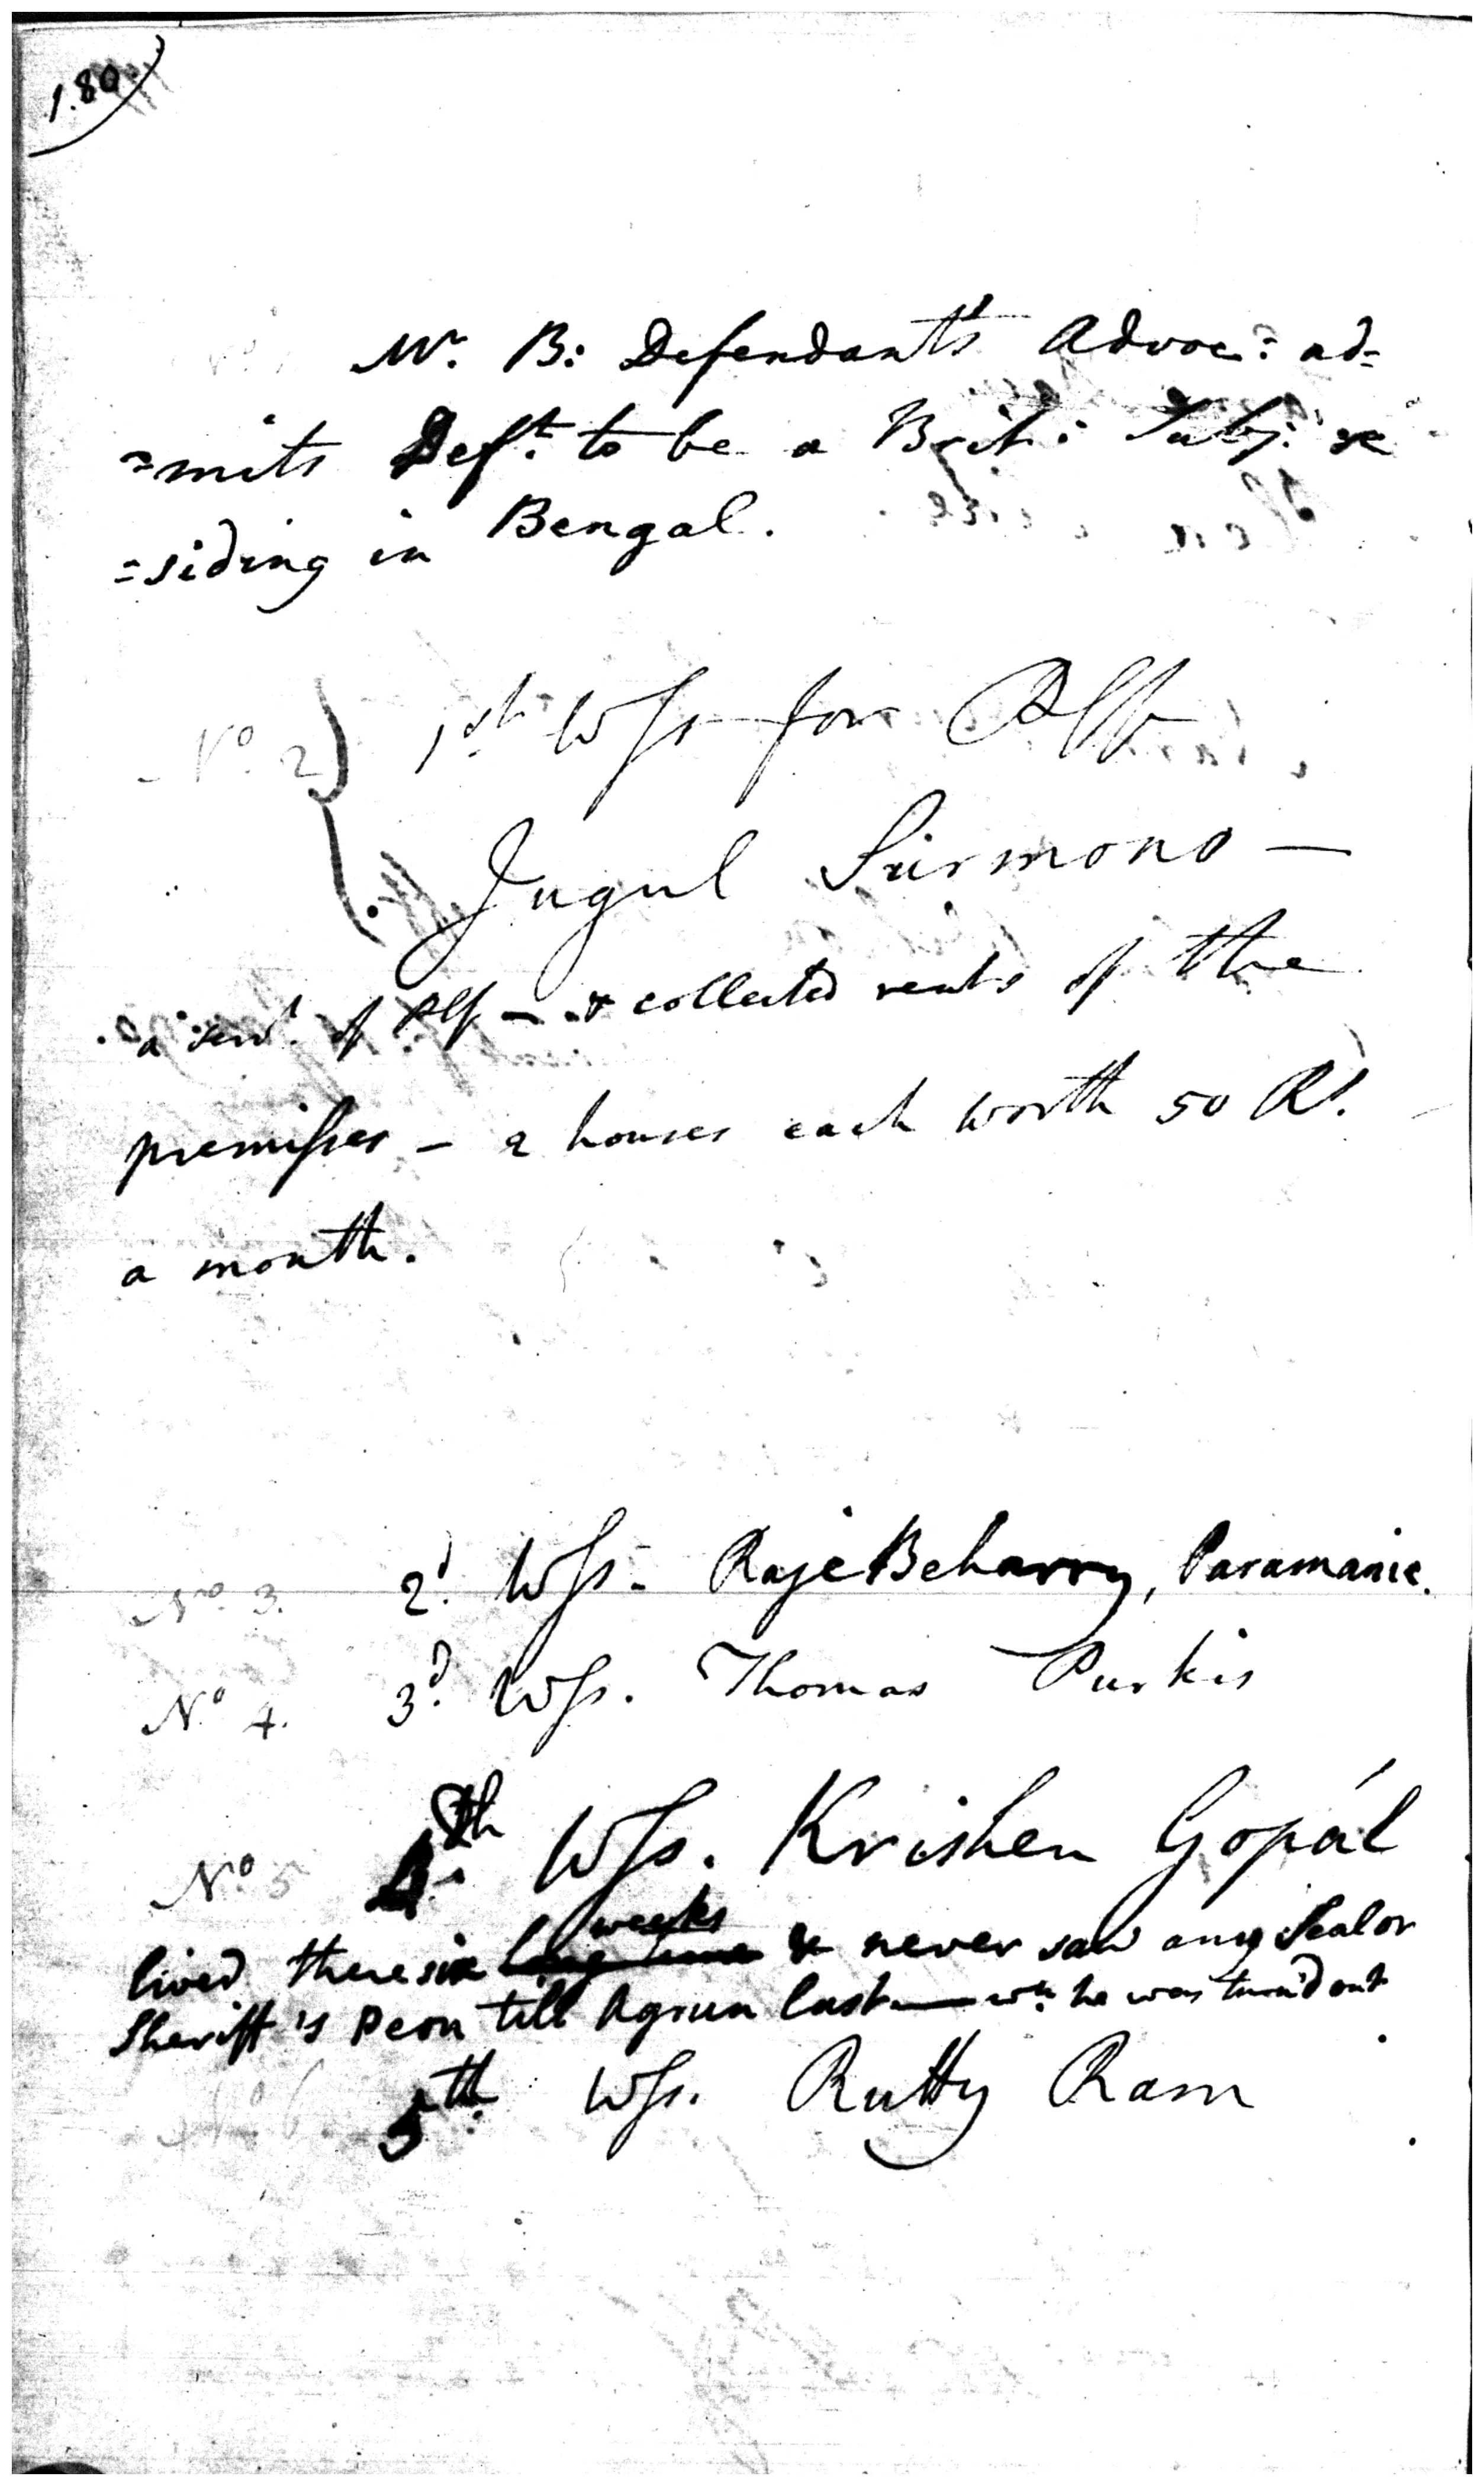 180
Mr. B: Defendant's Advoc: ad=
=mits Deft. to be a Brit: Subj: re
=siding in Bengal.
No. 2 1st Wss for Plff
Jugul Surmono —
a servt. of Plf — & collected rents of the
premisses — 2 houses each worth 50 Rs.
a month.
No. 3. 2d. Wss. Raje Beharry, Paramanic.
No. 4. 3d. Wss. Thomas Purkis
No. 5 4th. Wss. Krishen Gopál
lived there six weeks & never saw any Seal or
Sheriff's Peon till Agrun last — wn. he was turn'd out
No. 6 5th. Wss. Rutty Ram